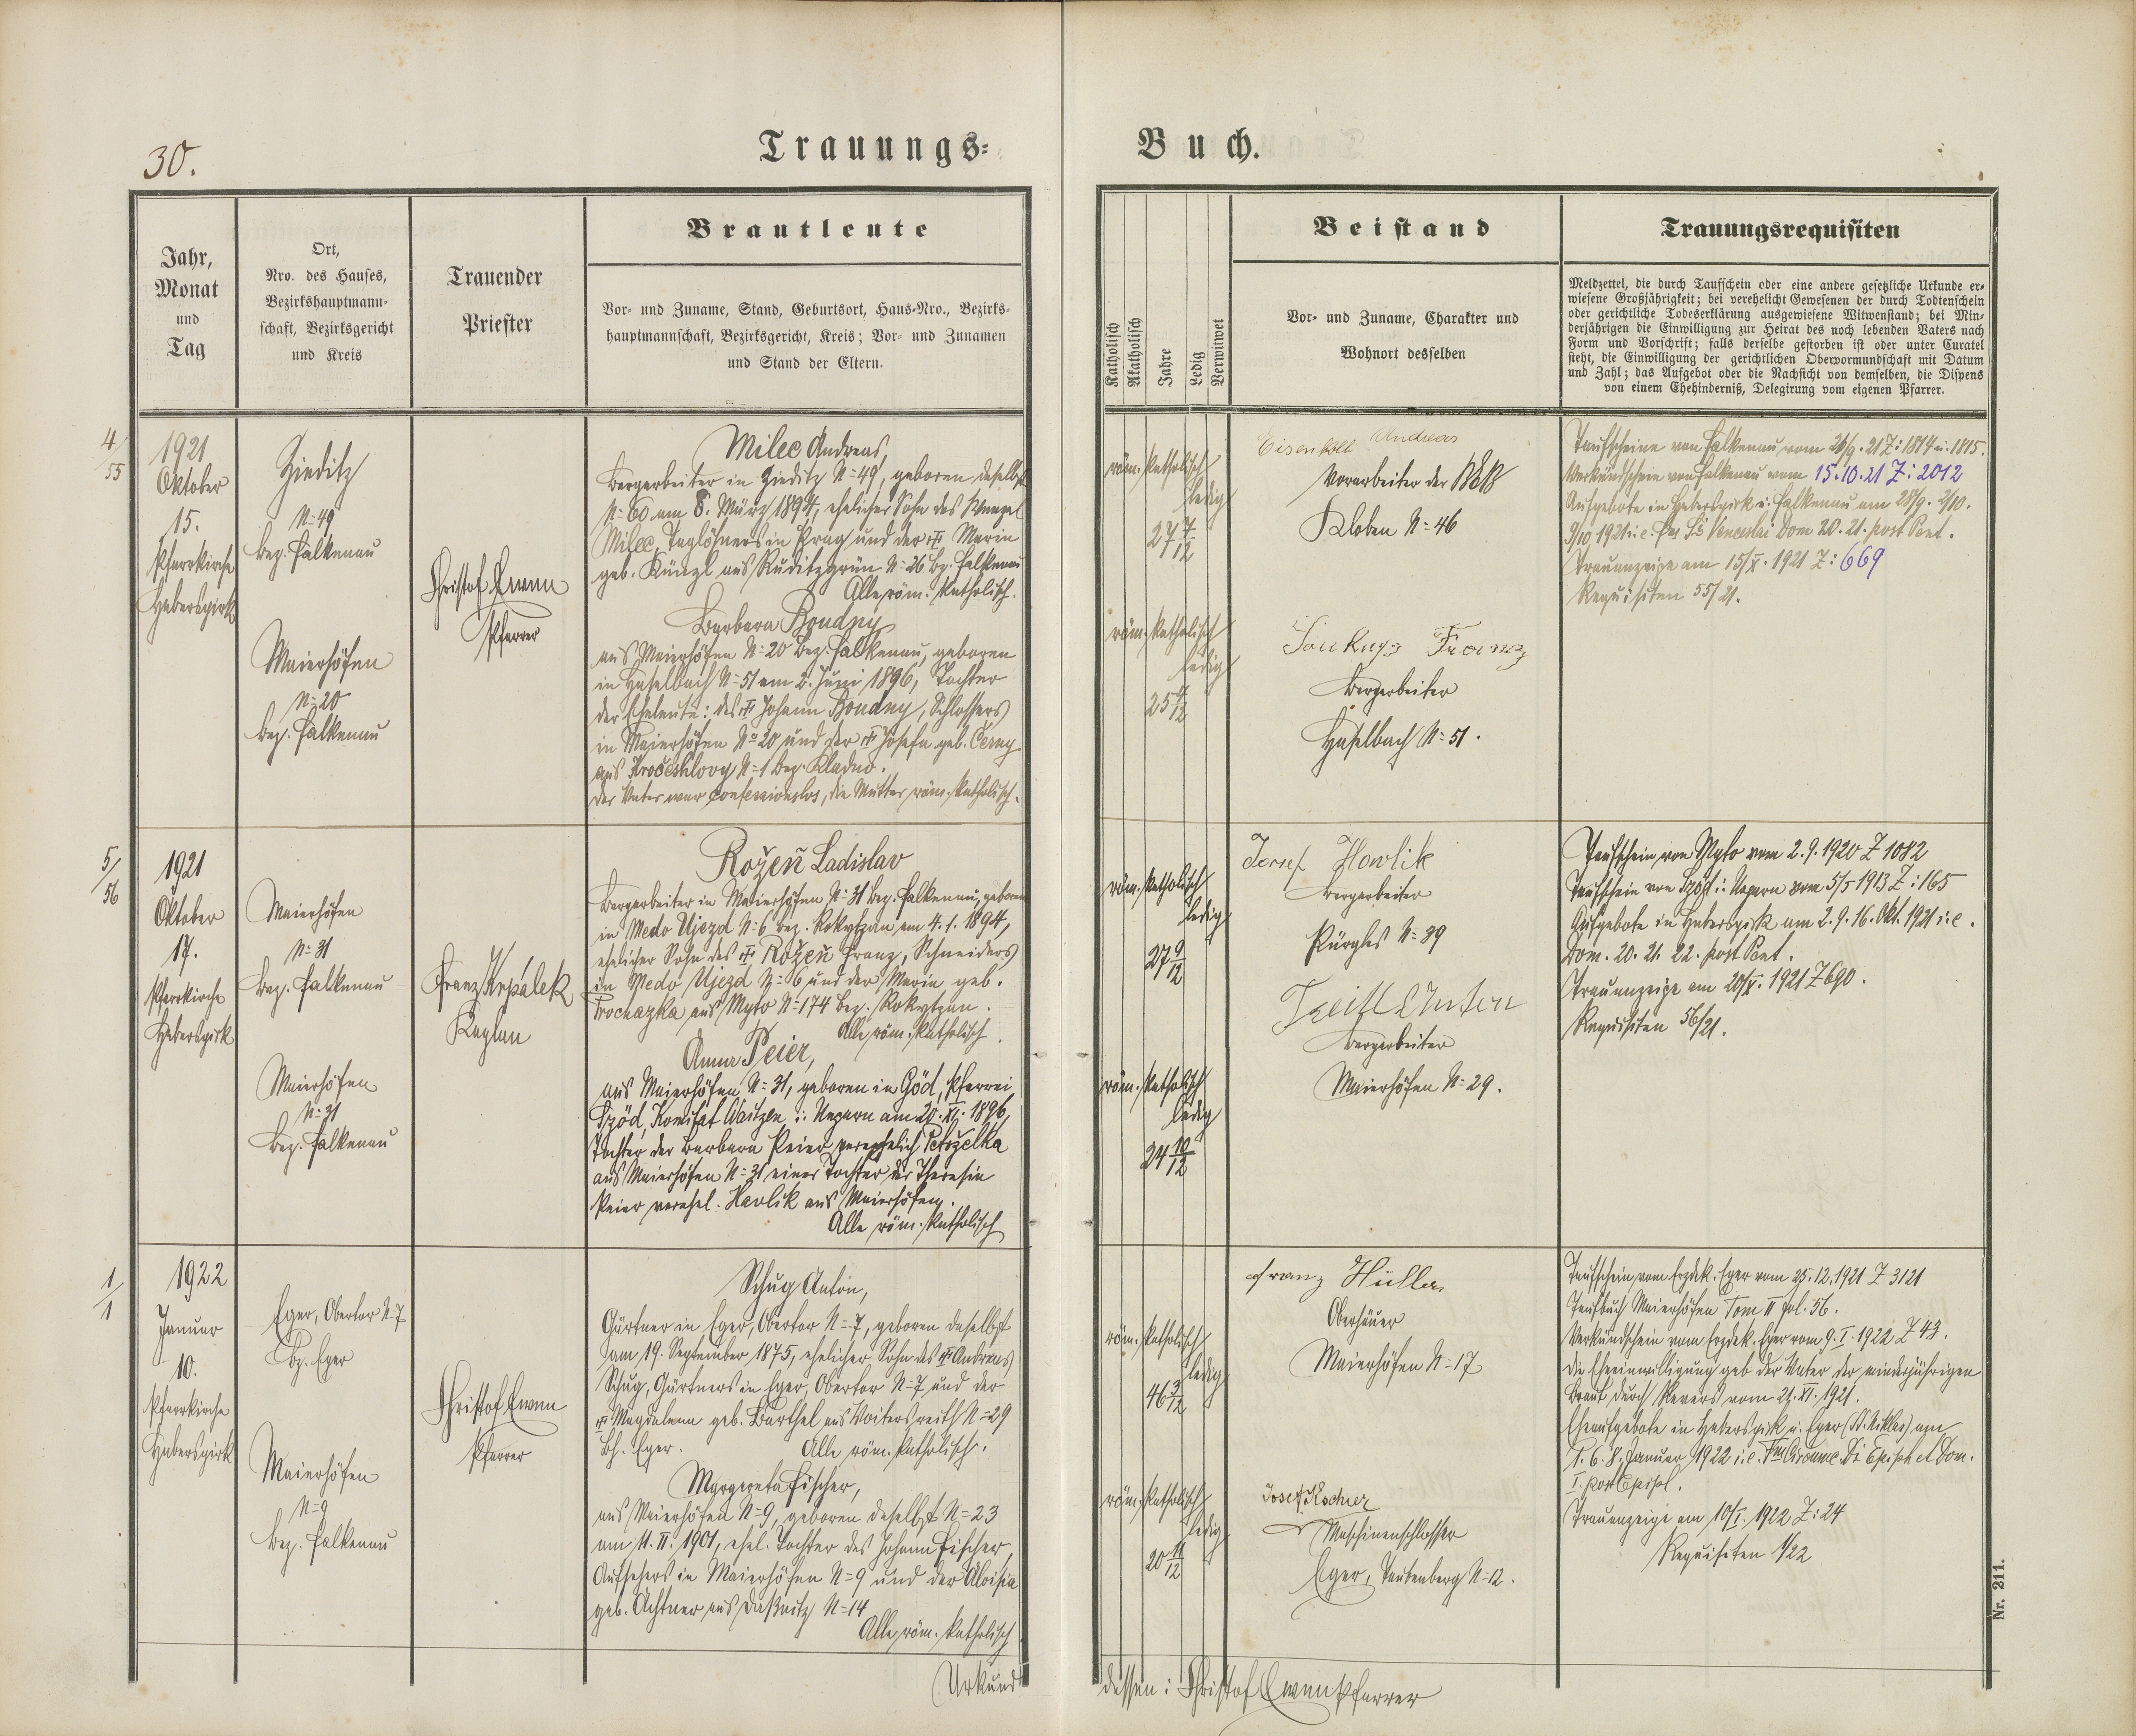 30.
Trauungs=
Buch.
Jahr,
Monat
und
Tag
Ort,
Nro. des Hauses,
Bezirkshauptmann-
schaft, Bezirksgericht
und Kreis
Trauender
Priester
Brautleute
Vor- und Zuname, Stand, Geburtsort, Haus-Nro., Bezirks-
hauptmannschaft, Bezirksgericht, Kreis; Vor- und Zunamen
und Stand der Eltern.
Katholisch
Akatholisch
Jahre
Ledig
Verwitwet
Beistand
Vor- und Zuname, Charakter und
Wohnort desselben
Trauungsrequisiten
Meldzettel, die durch Taufschein oder eine andere gesetzliche Urkunde er-
wiesene Großjährigkeit; bei verehelicht Gewesenen der durch Todtenschein
oder gerichtliche Todeserklärung ausgewiesene Witwenstand; bei Min-
derjährigen die Einwilligung zur Heirat des noch lebenden Vaters nach
Form und Vorschrift; falls derselbe gestorben ist oder unter Curatel
steht, die Einwilligung der gerichtlichen Obervormundschaft mit Datum
und Zahl; das Aufgebot oder die Nachsicht von demselben, die Dispens
von einem Ehehinderniß, Delegirung vom eigenen Pfarrer.
4/55
1921
Oktober
15.
Pfarrkirche
Haberspirk
Zieditz
N=49
Bez. Falkenau
Maierhöfen
N=20
Bez. Falkenau
Christof Ewenn
Pfarrer
Milec Andreas,
Bergarbeiter in Zieditz N=49, geboren daselbst
N=60 am 8. März 1894, ehelicher Sohn des Wenzel
Milec, Taglöhners in Prag und der Maria
geb. Künzl aus Ruditzgrün N=26 Bz. Falkenau
Alle röm. katholisch.
Barbara Boudny
aus Maierhöfen N=20 Bez. Falkenau, geboren
in Haselbach N=51 am 2. Juni 1896, Tochter
der Eheleute: des Johann Boudny, Schlossers
in Maierhöfen No 20 und der Josefa geb. Černy
aus Kročehlovy N=1 Bez. Kladno.
Der Vater war confessionslos, die Mutter röm. katholisch.
röm. katholisch
ledig
27 7/12
röm. katholisch
ledig
25 4/12
Eisenkolb Andreas
Vorarbeiter der BEB
Kloben N=46
Soukup Franz
Bergarbeiter
Haselbach N=51.
Taufscheine von Falkenau vom 26/9. 21 Z: 1814 u. 1815.
Verkündschein von Falkenau vom 15.10.21 Z: 2012
Aufgebote in Haberspirk u. Falkenau am 28/9. 2/10.
9/10 1921 i. e. Fer. Sti Venceslai Dom 20. 21. post Pent.
Trauanzeige am 15/X. 1921 Z: 669
Requisiten 55/21.
5/56
1921
Oktober
17.
Pfarrkirche
Haberspirk
Maierhöfen
N=31
Bez. Falkenau
Maierhöfen
N=31
Bez. Falkenau
Franz Krpálek
Kaplan
Rožeň Ladislav
Bergarbeiter in Maierhöfen N=31 Bez. Falkenau, geboren
in Medo Ujezd N=6 Bez. Rokytzan am 4. 1. 1894,
ehelicher Sohn des Rožeň Franz, Schneiders
in Medo Ujezd N=6 und der Maria geb.
Prochazka aus Myto N=174 Bez. Rokytzan.
Alle röm. katholisch.
Anna Peier,
aus Maierhöfen N=31, geboren in Göd, Pfarrei
Szöd, Komitat Waitzen i: Ungarn am 20. XI. 1896,
Tochter der Barbara Peier verehelich Petrželka
aus Maierhöfen N=31 einer Tochter der Theresia
Peier verehel. Havlik aus Maierhöfen.
Alle röm. katholisch
röm. katholisch
ledig
27 9/12
röm. katholisch
ledig
24 10/12
Josef Hawlik
Bergarbeiter
Pürgles N=39
Bergarbeiter
Maierhöfen N=29.
Taufschein von Myto vom 2. 9. 1920 Z 1082
Taufschein von Szöd i: Ungarn vom 5/5 1913 Z: 165
Aufgebote in Haberspirk am 2. 9. 16. Okt. 1921 i. e.
Dom. 20. 21. 22. post Pent.
Trauanzeige am 20/X. 1921 Z 690.
Requisiten 56/21.
1/1
1922
Januar
10.
Pfarrkirche
Haberspirk
Eger, Obertor N=7
Bz. Eger
Maierhöfen
N=9
Bez. Falkenau
Christof Ewenn
Pfarrer
Schug Anton,
Gärtner in Eger, Obertor N=7, geboren daselbst
am 19. September 1875, ehelicher Sohn des Andreas
Schug, Gärtners in Eger, Obertor N=7 und der
Magdalena geb. Barthel aus Voitersreith N=29
Bh. Eger. Alle röm. katholisch.
Margareta Fischer,
aus Maierhöfen N=9, geboren daselbst N=23
am 11. II. 1901, ehel. Tochter des Johann Fischer,
Aufsehers in Maierhöfen N=9 und der Aloisia
geb. Achtner aus Daßnitz N=14
Alle röm. katholisch
röm. katholisch
ledig
46 3/12
röm. katholisch
ledig
20 11/12
Franz Müller
Oberhäuer
Maierhöfen N=17
Josef Kocher
Maschinenschlosser
Eger, Taubenberg N=12.
Taufschein vom Erzdek. Eger vom 25. 12. 1921 Z 3121
Taufbuch Maierhöfen Tom II Fol. 56.
Verkündschein vom Erzdek. Eger vom 9. I. 1922 Z 43.
Die Eheeinwilligung gab der Vater der minderjährigen
Braut durch Revers vom 27. XI. 1921.
Eheaufgebote in Haberspirk u. Eger (St. Niklas) am
1. 6. 8. Januar 1922 i. e. Fm Circumc. Di Epiph et Dom.
I. post Epiph.
Trauanzeige am 10/I. 1922 Z: 24
Requisiten 1/22
Urkund
dessen: Christof Ewenn Pfarrer
Nr. 211.